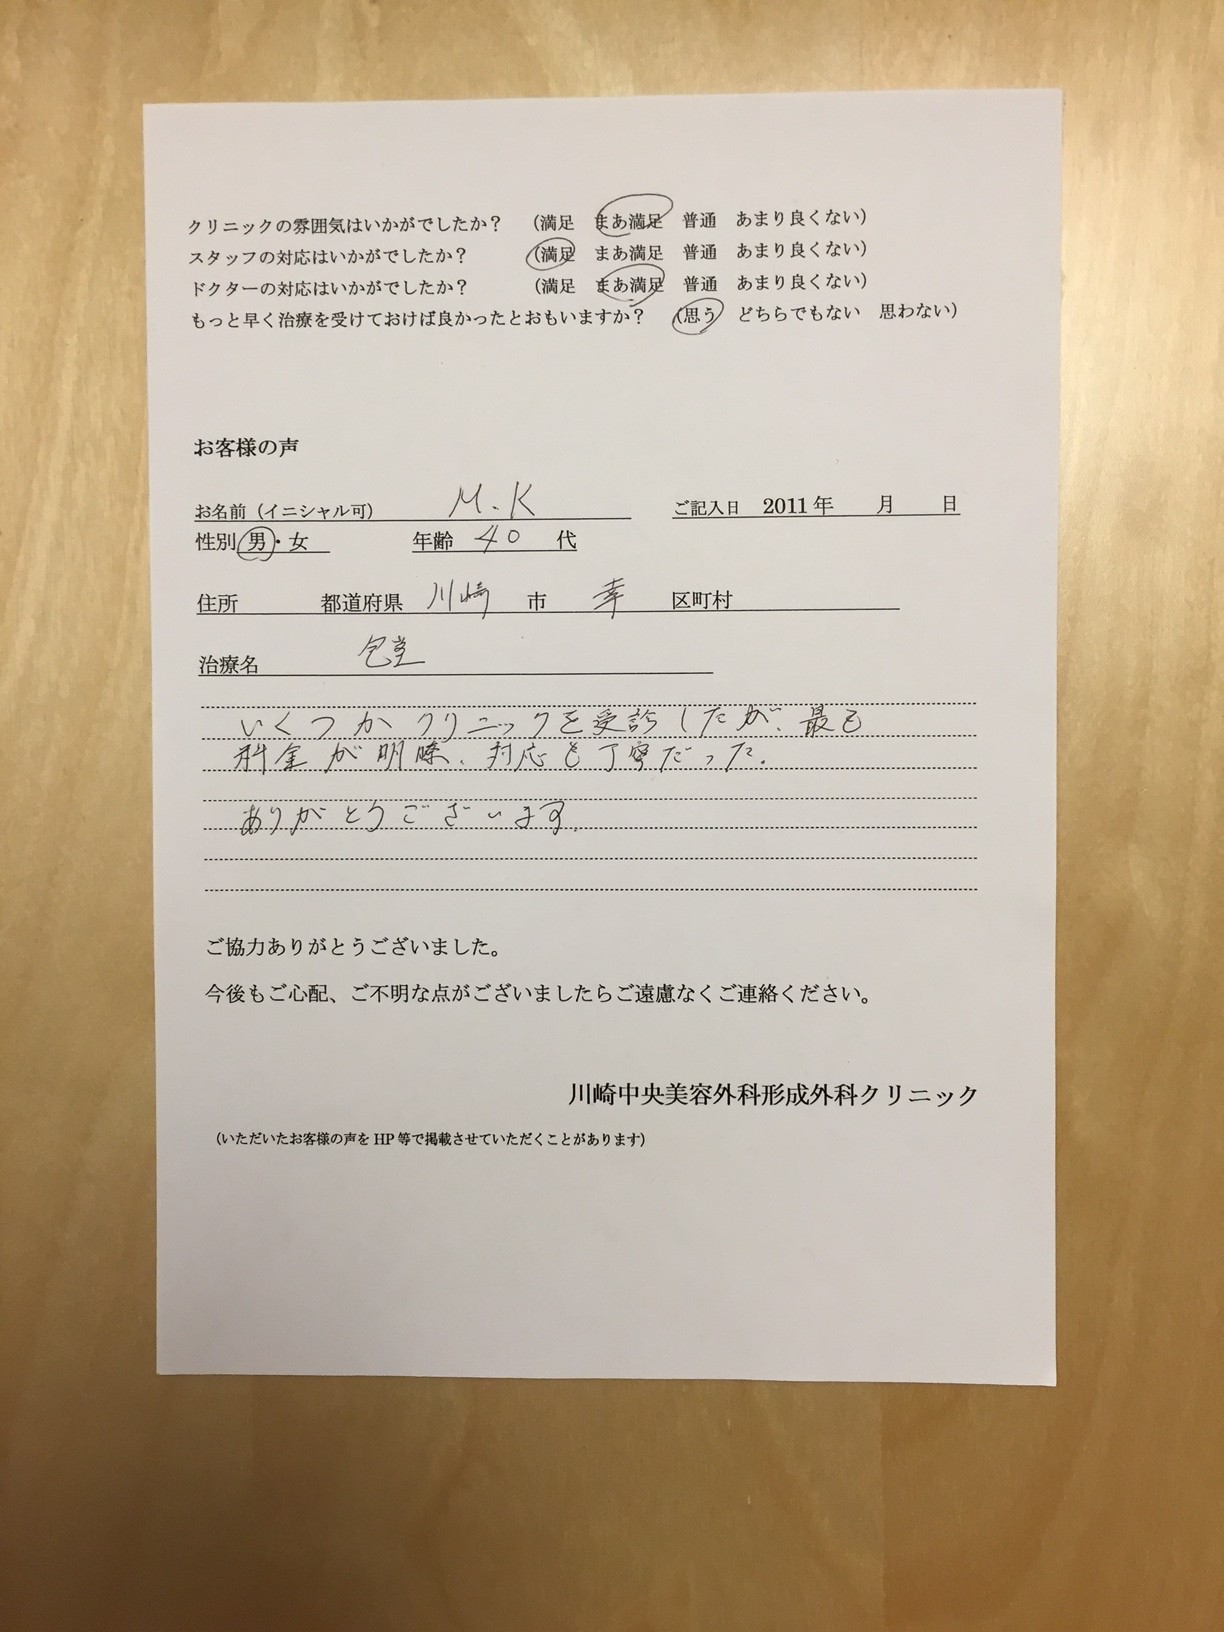 クリニックの雰囲気はいかがでしたか？ （満足 まあ満足 普通 あまり良くない）
スタッフの対応はいかがでしたか？ （満足 まあ満足 普通 あまり良くない）
ドクターの対応はいかがでしたか？ （満足 まあ満足 普通 あまり良くない）
もっと早く治療を受けておけば良かったとおもいますか？ （思う どちらでもない 思わない）
お客様の声
お名前（イニシャル可） M.K ご記入日 2011年 月 日
性別 男・女 年齢 40 代
住所 都道府県 川崎 市 幸 区町村
治療名 包茎
いくつかクリニックを受診したが、最も
料金が明瞭、対応も丁寧だった。
ありがとうございます。
ご協力ありがとうございました。
今後もご心配、ご不明な点がございましたらご遠慮なくご連絡ください。
川崎中央美容外科形成外科クリニック
（いただいたお客様の声を HP 等で掲載させていただくことがあります）